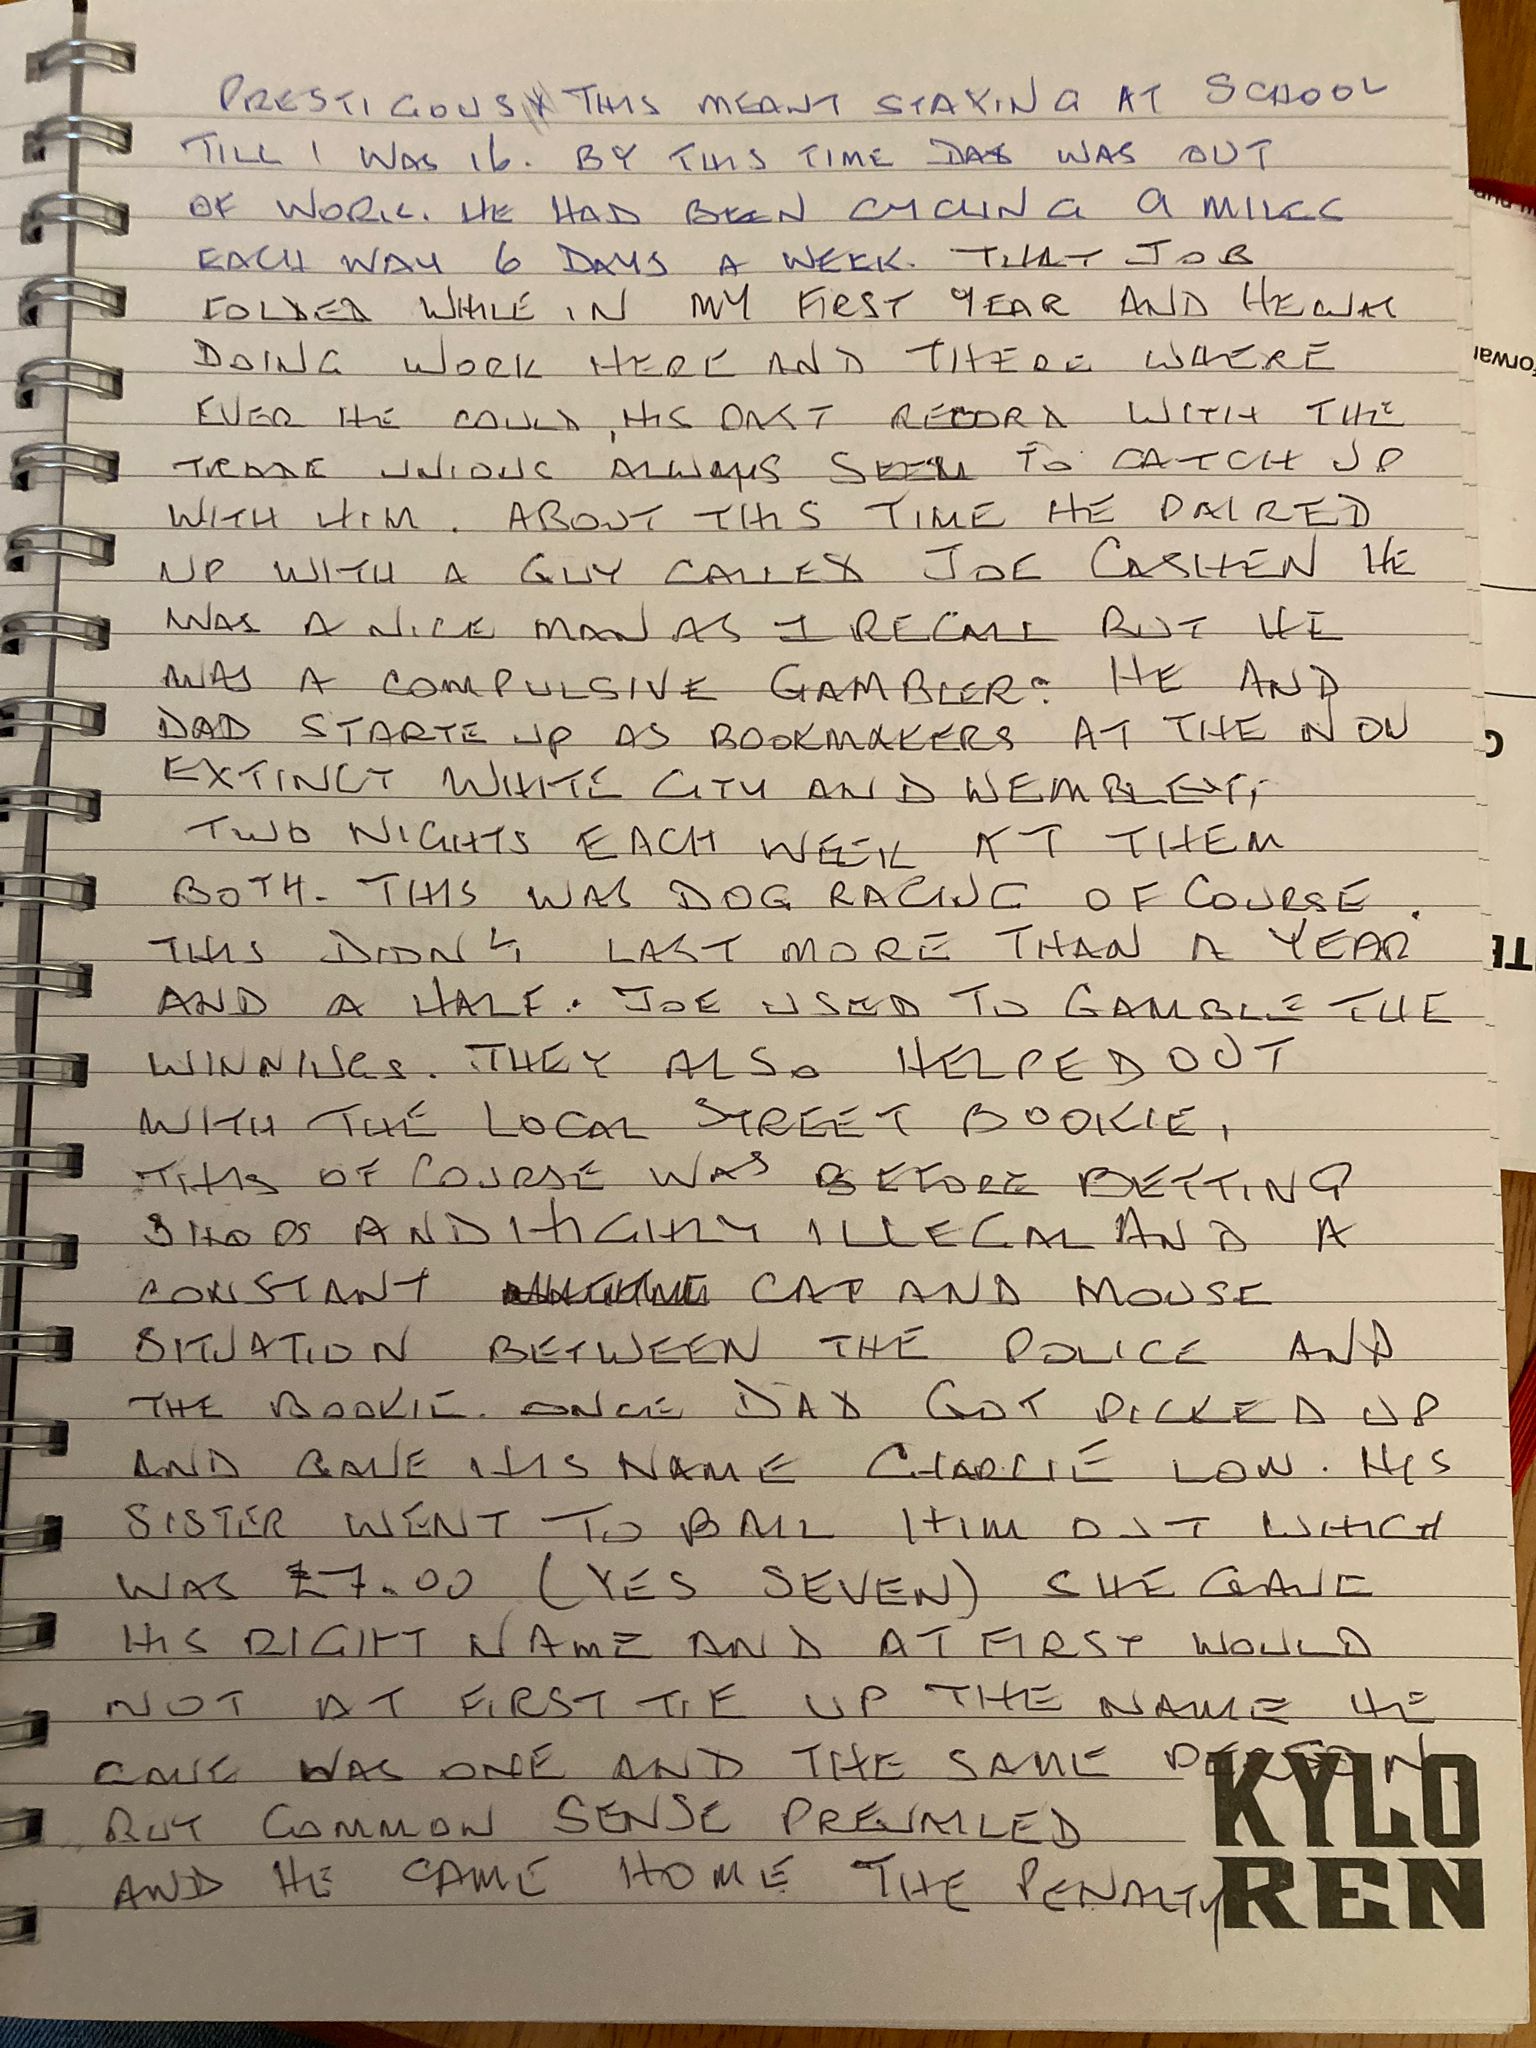 PRESTIGOUS THIS MEANT STAYING AT SCHOOL
TILL I WAS 16. BY THIS TIME DAD WAS OUT
OF WORK. HE HAD BEEN CYCLING 9 MILES
EACH WAY 6 DAYS A WEEK. THAT JOB
FOLDED WHILE IN MY FIRST YEAR AND HE WAS
DOING WORK HERE AND THERE WHERE
EVER HE COULD, HIS PAST RECORD WITH THE
TRADE UNIONS ALWAYS SEEM TO CATCH UP
WITH HIM. ABOUT THIS TIME HE PAIRED
UP WITH A GUY CALLED JOE CASHEN HE
WAS A NICE MAN AS I RECALL BUT HE
WAS A COMPULSIVE GAMBLER. HE AND
DAD STARTE UP AS BOOKMAKERS AT THE NOW
EXTINCT WHITE CITY AND WEMBLEY,
TWO NIGHTS EACH WEEK AT THEM
BOTH. THIS WAS DOG RACING OF COURSE.
THIS DIDN'T LAST MORE THAN A YEAR
AND A HALF. JOE USED TO GAMBLE THE
WINNINGS. THEY ALSO HELPED OUT
WITH THE LOCAL STREET BOOKIE,
THIS OF COURSE WAS BEFORE BETTING
SHOPS AND HIGHLY ILLEGAL AND A
CONSTANT CAT AND MOUSE
SITUATION BETWEEN THE POLICE AND
THE BOOKIE. ONCE DAD GOT PICKED UP
AND GAVE HIS NAME CHARLIE LOW. HIS
SISTER WENT TO BAIL HIM OUT WHICH
WAS £7.00 (YES SEVEN) SHE GAVE
HIS RIGHT NAME AND AT FIRST WOULD
NOT AT FIRST TIE UP THE NAME HE
GAVE WAS ONE AND THE SAME PERSON
BUT COMMON SENSE PREVAILED
AND HE CAME HOME THE PENALTY
KYLO
REN